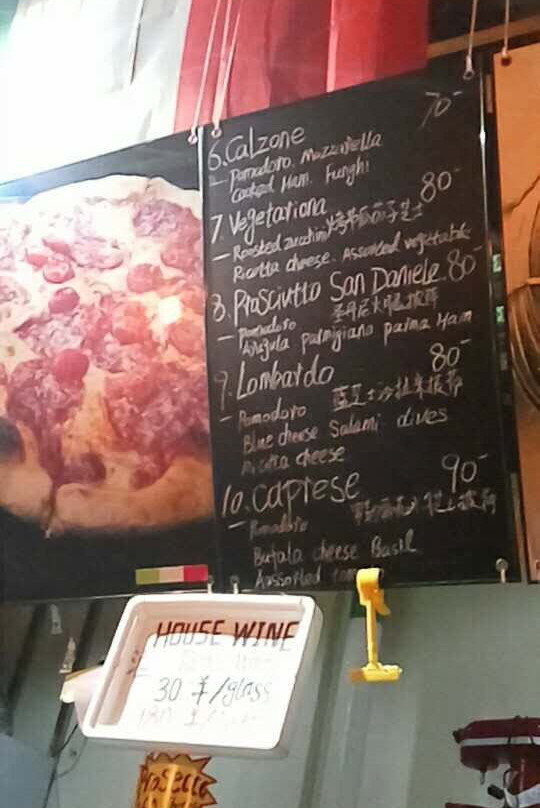 6. Calzone 70-
- Pomodoro. Mozzarella
Cooked Ham. Funghi
7. Vegetariana 80-
- Roasted zucchini
Ricotta cheese. Assorted vegetable
8. Prosciutto San Daniele 80-
- Pomodoro
Arugula parmigiano parma Ham
9. Lombardo 80-
- Pomodoro 蓝芝士沙拉米披萨
Blue cheese Salami olives
Ricotta cheese
10. Caprese 90-
- Pomodoro
Bufala cheese Basil
Aassorted
HOUSE WINE
30 ¥/glass
PROSECCO